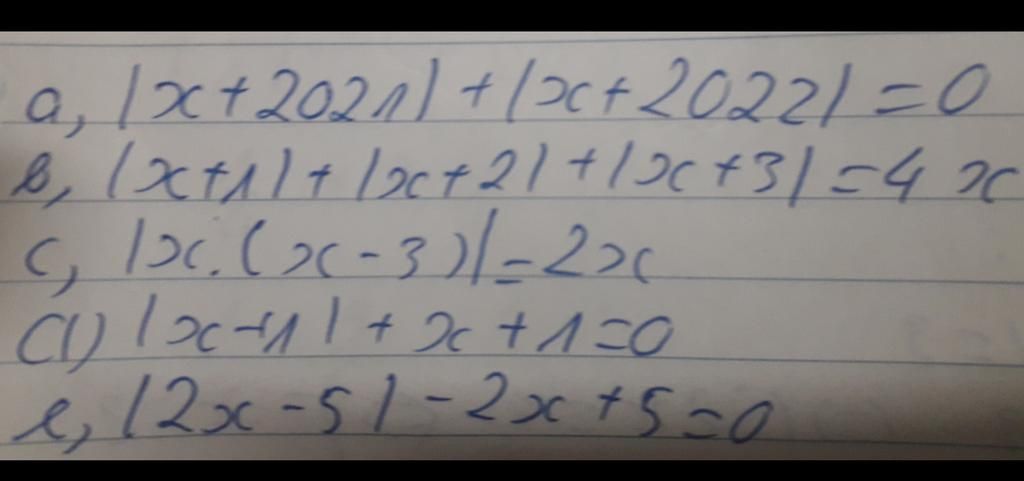 a, |x+2021|+|x+2022|=0
b, |x+1|+|x+2|+|x+3|=4x
c, |x.(x-3)|=2x
d) |x+1|+x+1=0
e, |2x-5|-2x+5=0